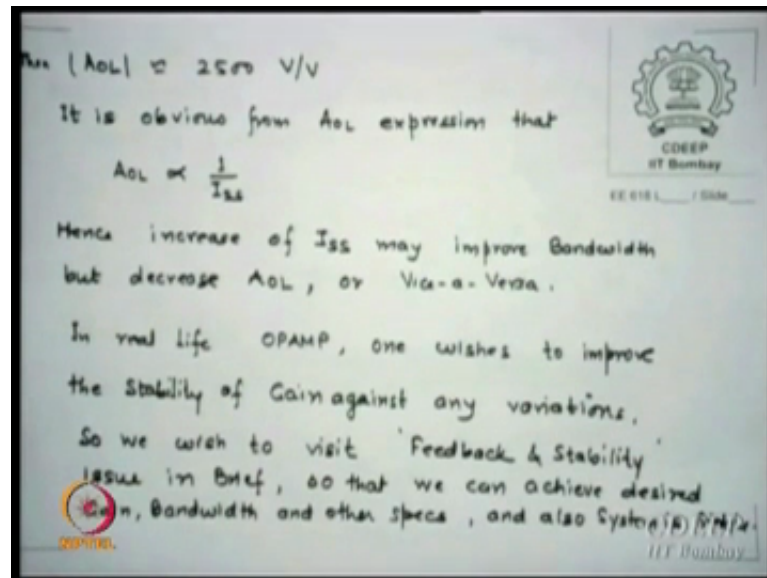 Then |AOL| ≈ 2500 V/V
It is obvious from AOL expression that
AOL ∝ 1/ISS
Hence increase of ISS may improve Bandwidth
but decrease AOL, or Vice-a-Versa.
In real life OPAMP, one wishes to improve
the Stability of Gain against any variations.
So we wish to visit 'Feedback & Stability'
issue in Brief, so that we can achieve desired
Gain, Bandwidth and other specs, and also System is
CDEEP
IIT Bombay
EE 618 L____ / Slide____
NPTEL
CDEEP
IIT Bombay